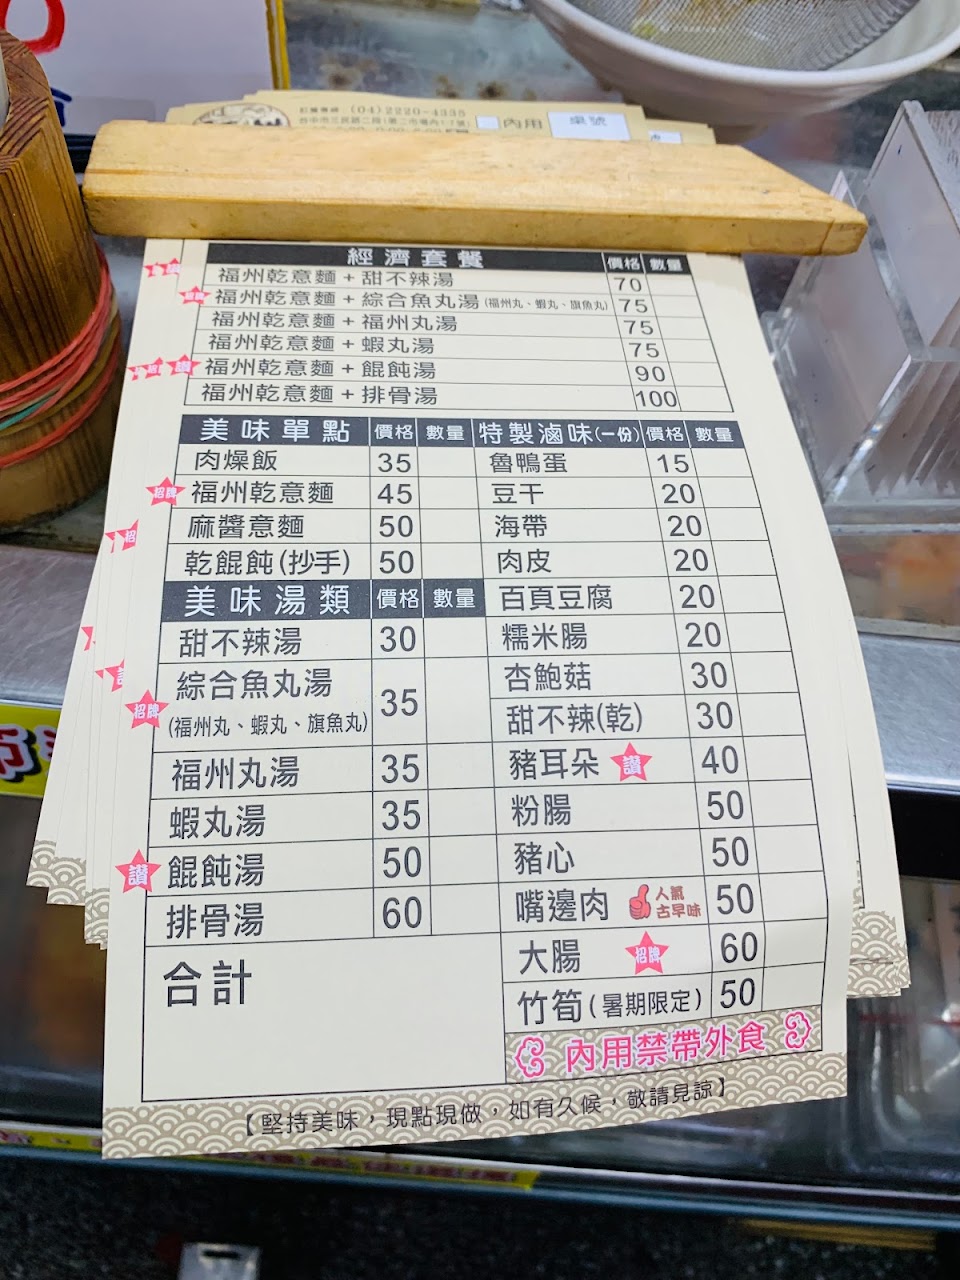 (04)2220-4335
內用 桌號
經濟套餐 價格 數量
福州乾意麵+甜不辣湯 70
福州乾意麵+綜合魚丸湯(福州丸、蝦丸、旗魚丸) 75
福州乾意麵+福州丸湯 75
福州乾意麵+蝦丸湯 75
讚 福州乾意麵+餛飩湯 90
福州乾意麵+排骨湯 100
美味單點 價格 數量
肉燥飯 35
招牌 福州乾意麵 45
麻醬意麵 50
乾餛飩(抄手) 50
美味湯類 價格 數量
甜不辣湯 30
招牌 綜合魚丸湯 35
(福州丸、蝦丸、旗魚丸)
福州丸湯 35
蝦丸湯 35
讚 餛飩湯 50
排骨湯 60
合計
特製滷味(一份) 價格 數量
魯鴨蛋 15
豆干 20
海帶 20
肉皮 20
百頁豆腐 20
糯米腸 20
杏鮑菇 30
甜不辣(乾) 30
豬耳朵 讚 40
粉腸 50
豬心 50
嘴邊肉 人氣古早味 50
大腸 招牌 60
竹筍(暑期限定) 50
內用禁帶外食
【堅持美味,現點現做,如有久候,敬請見諒】